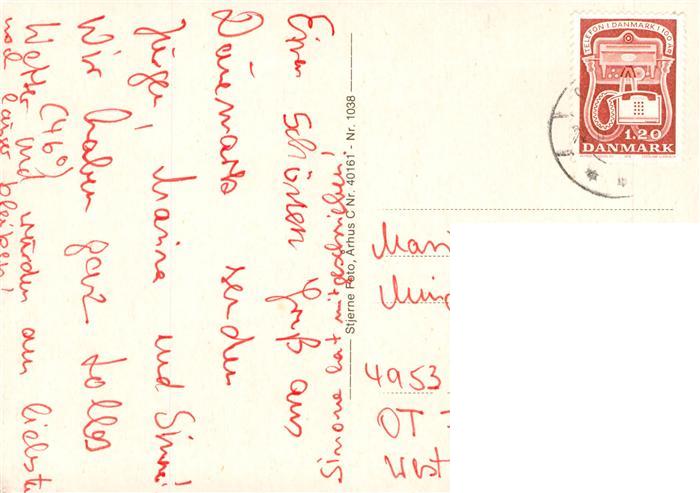 Einen schönen Gruß aus
Dänemark senden
Jürgen, Marina und Simone!
Wir haben ganz tolles
Wetter (46°) und würden am liebsten
noch länger bleiben!
Simone hat mitgeschrieben!
Stjerne Foto, Århus C Nr. 40161 - Nr. 1038
TELEFON I DANMARK I 100 ÅR
1.20
DANMARK
4953
OT